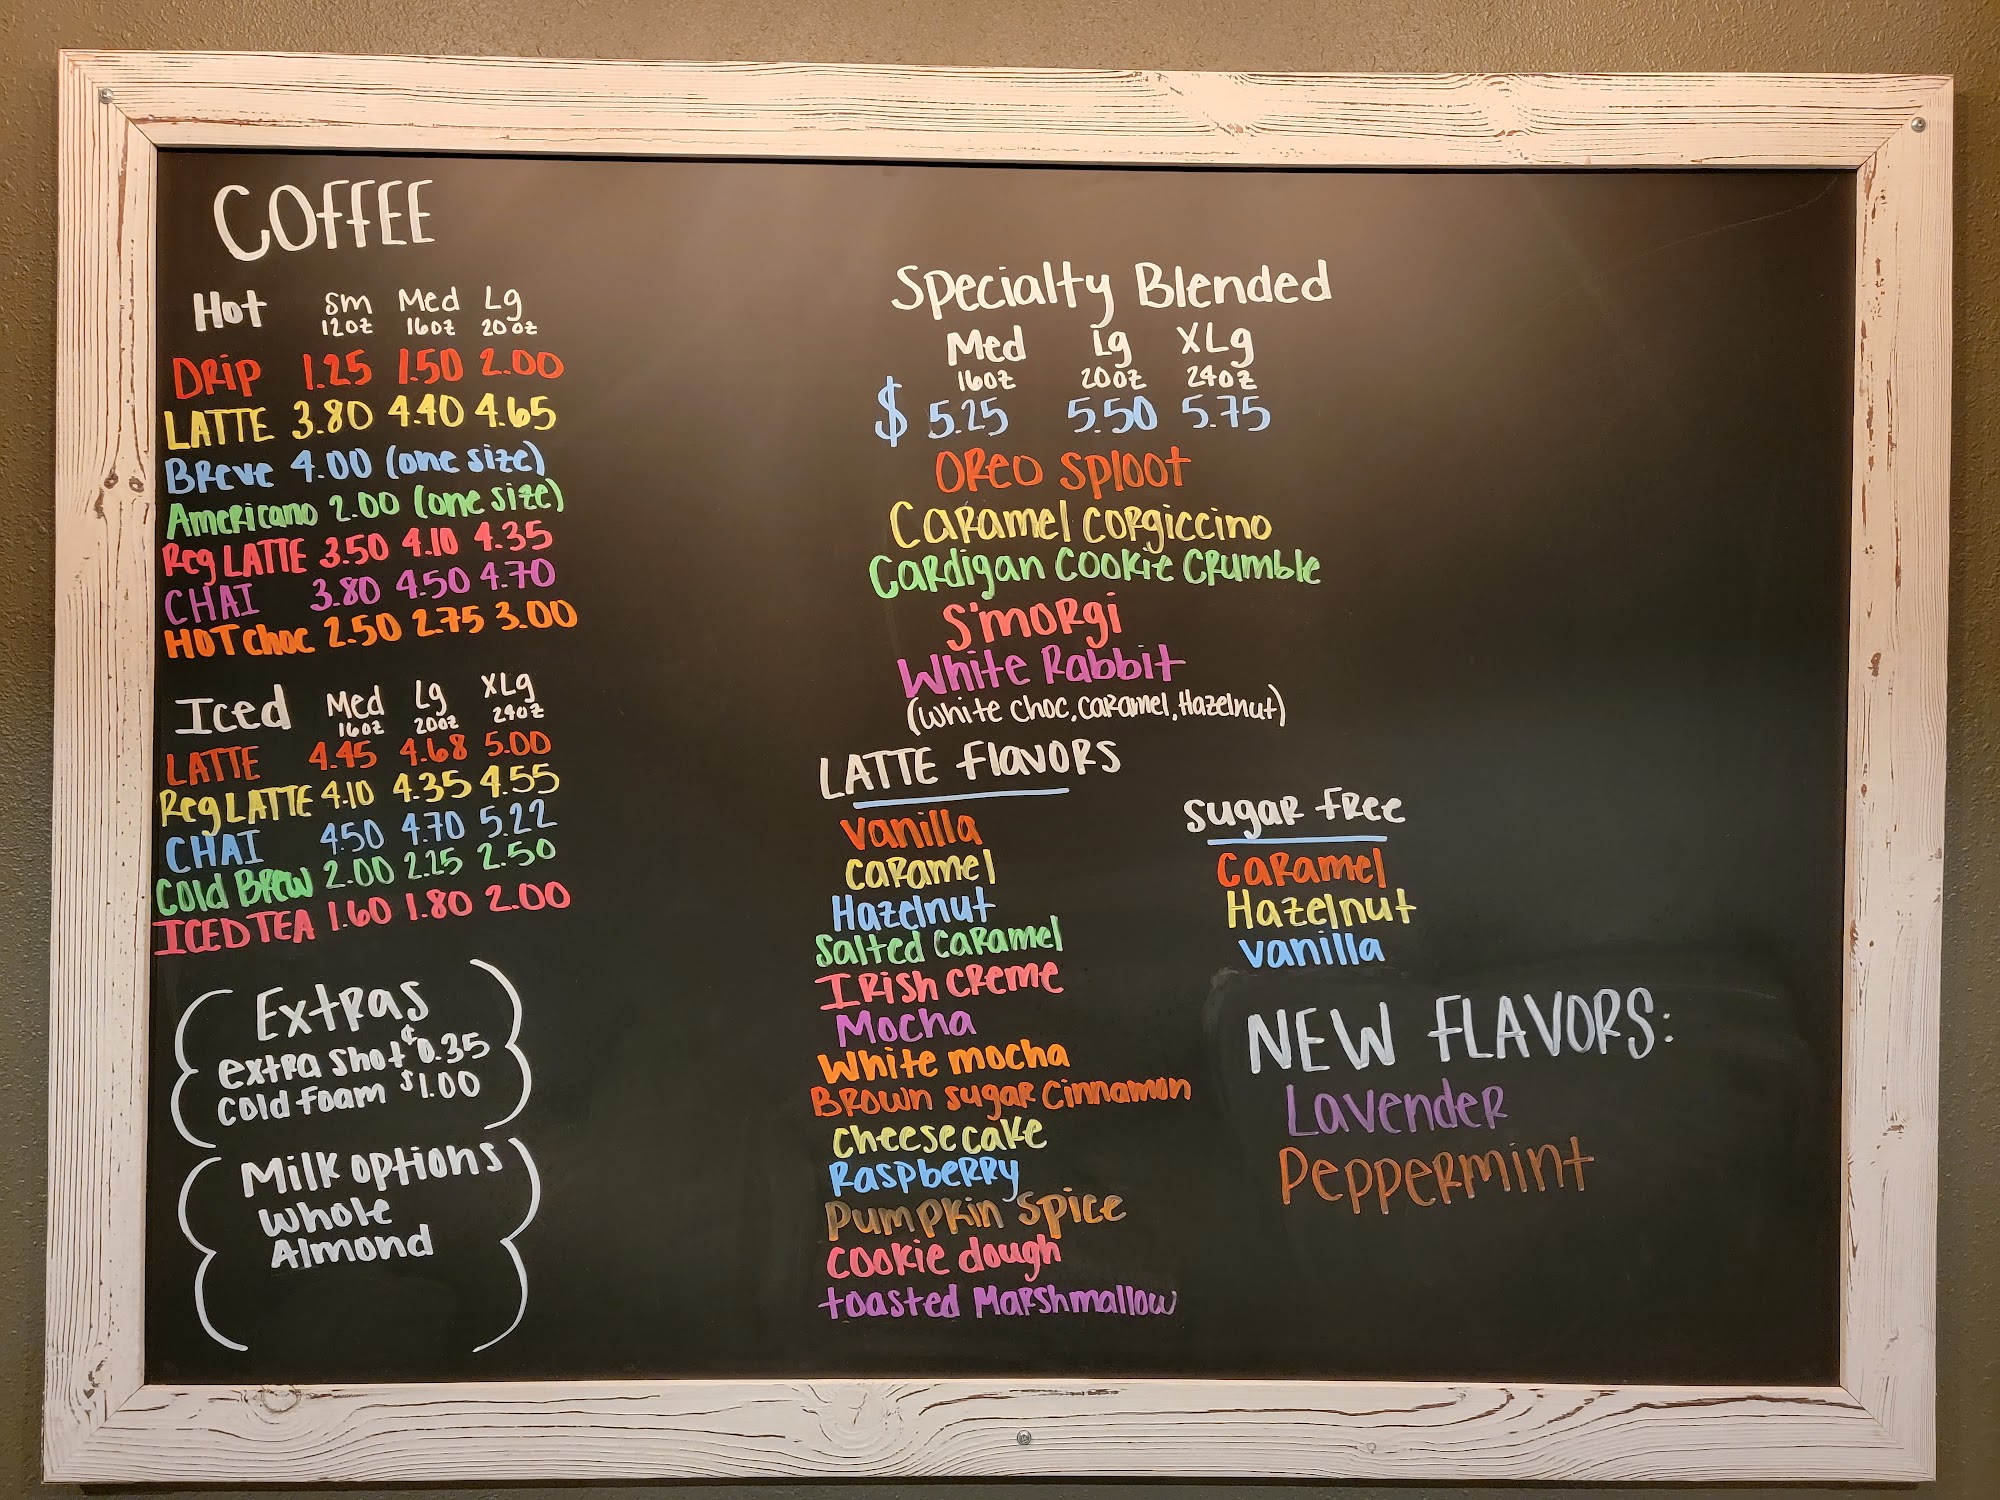 COFFEE
Hot sm Med Lg
12oz 16oz 20oz
Drip 1.25 1.50 2.00
LATTE 3.80 4.40 4.65
Breve 4.00 (one size)
Americano 2.00 (one size)
Reg LATTE 3.50 4.10 4.35
CHAI 3.80 4.50 4.70
HOT choc 2.50 2.75 3.00
Iced Med Lg XLg
16oz 20oz 24oz
LATTE 4.45 4.68 5.00
Reg LATTE 4.10 4.35 4.55
CHAI 4.50 4.70 5.22
Cold Brew 2.00 2.25 2.50
ICED TEA 1.60 1.80 2.00
Extras
extra shot ¢0.35
cold foam $1.00
Milk options
Whole
Almond
Specialty Blended
Med Lg XLg
16oz 20oz 24oz
$ 5.25 5.50 5.75
Oreo Sploot
Caramel Corgiccino
Cardigan Cookie Crumble
S'morgi
White Rabbit
(White choc, caramel, Hazelnut)
LATTE flavors
Vanilla
Caramel
Hazelnut
Salted Caramel
Irish Creme
Mocha
White mocha
Brown sugar Cinnamon
Cheesecake
Raspberry
Pumpkin Spice
Cookie dough
toasted Marshmallow
Sugar free
Caramel
Hazelnut
Vanilla
NEW FLAVORS:
Lavender
Peppermint